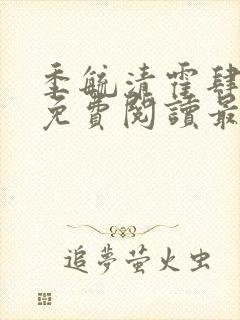 季毓清霍肆
免費閱讀最
追夢萤火虫